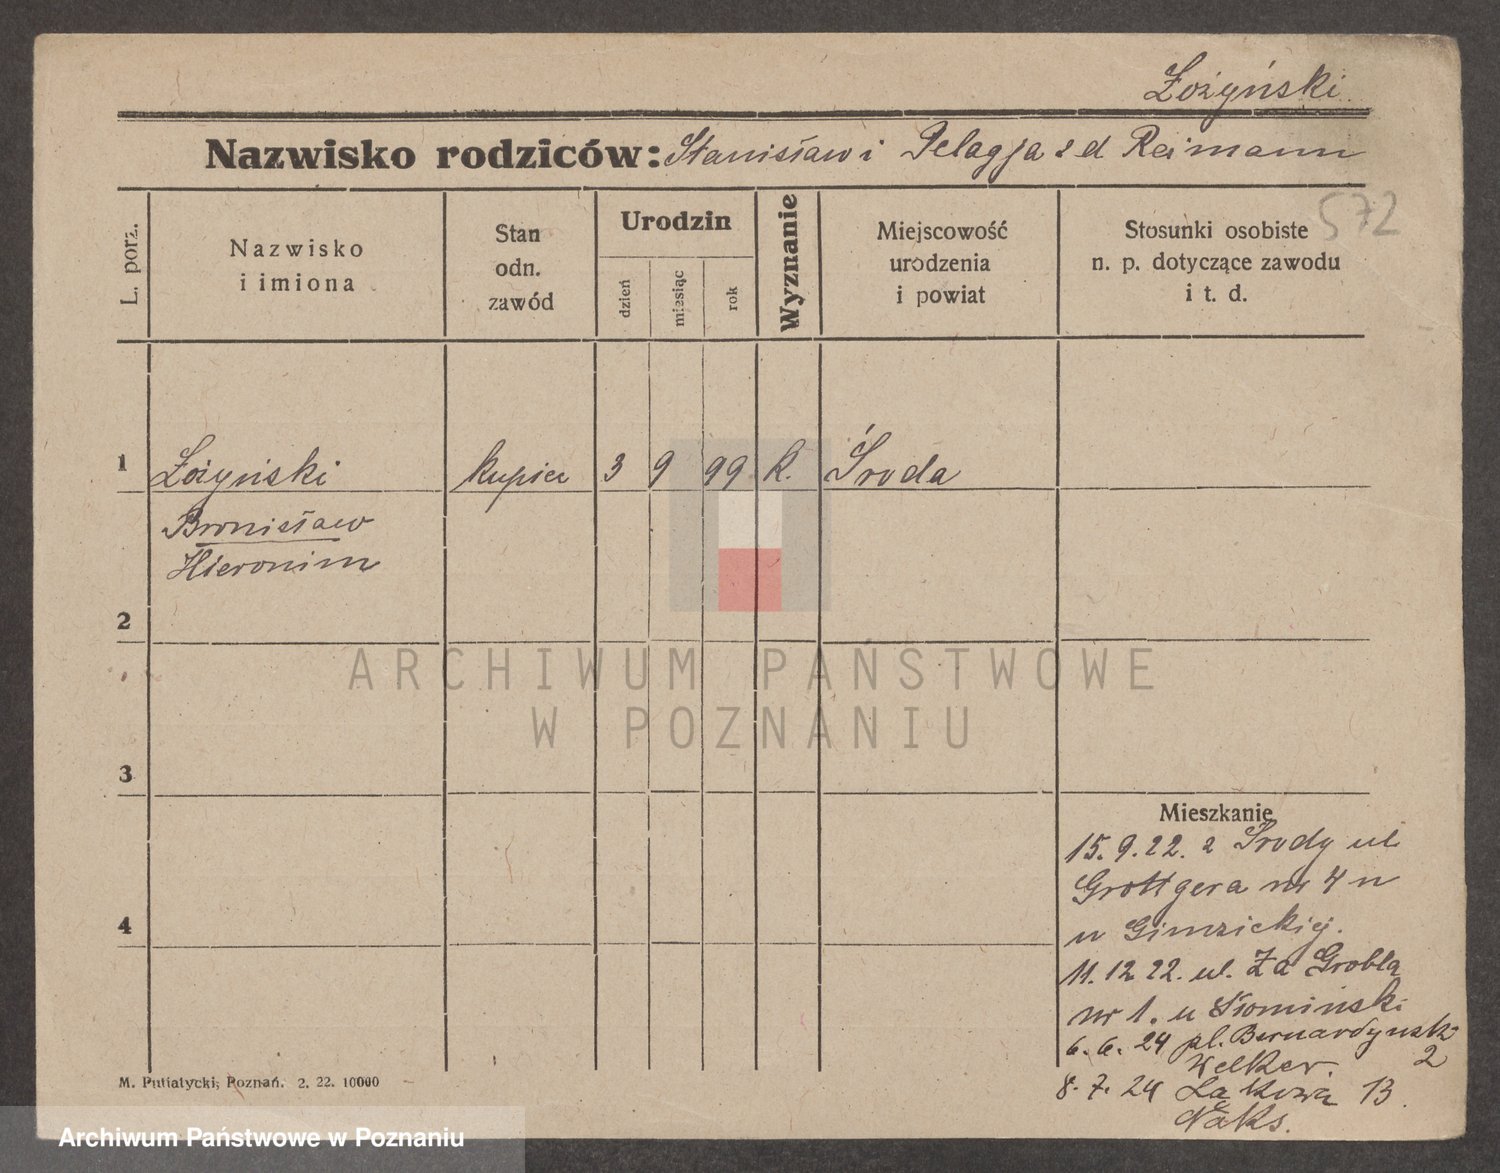 Łożyński
Nazwisko rodziców: Stanisław i Pelagja z d Reimann
572
L. porz.
Nazwisko
i imiona
Stan
odn.
zawód
Urodzin
dzień
miesiąc
rok
Wyznanie
Miejscowość
urodzenia
i powiat
Stosunki osobiste
n. p. dotyczące zawodu
i t. d.
1 Łożyński kupiec 3 9 99 k. Środa
Bronisław
Hieronim
2
ARCHIWUM PAŃSTWOWE
W POZNANIU
3
4
Mieszkanie
15. 9. 22. z Środy ul
Grottgera nr 4 n
u
11. 12 22. ul. Za Groblą
nr 1. u Słomiński
6. 6. 24 pl. Bernardyńsk
2
Welker.
8. 7. 24 Łąkowa 13.
Naks.
M. Putiatycki, Poznań. 2. 22. 10000
Archiwum Państwowe w Poznaniu